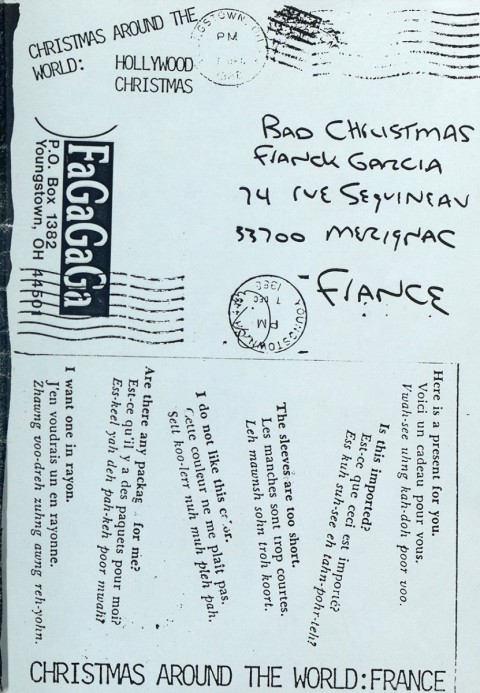 CHRISTMAS AROUND THE
WORLD: HOLLYWOOD
CHRISTMAS
PM
BAD CHRISTMAS
FRANCK GARCIA
74 RUE SEQUINEAU
33700 MERIGNAC
FRANCE
FaGaGaGa
P.O. Box 1382
Youngstown, OH 44501
YOUNGSTOWN
PM
7 DEC
Here is a present for you.
Voici un cadeau pour vous.
Vwah-see uhng kah-doh poor voo.
Is this imported?
Est-ce que ceci est importé?
Ess kuh suh-see eh tahn-pohr-teh?
The sleeves are too short.
Les manches sont trop courtes.
Leh mawnsh sohn troh koort.
I do not like this
Cette couleur ne me plaît pas.
Sett koo-lerr nuh muh pleh pah.
Are there any packag for me?
Est-ce qu'il y a des paquets pour moi?
Ess-keel yah deh pah-keh poor mwah?
I want one in rayon.
J'en voudrais un en rayonne.
Zhawng voo-dreh zuhng awng reh-yohn.
CHRISTMAS AROUND THE WORLD:FRANCE